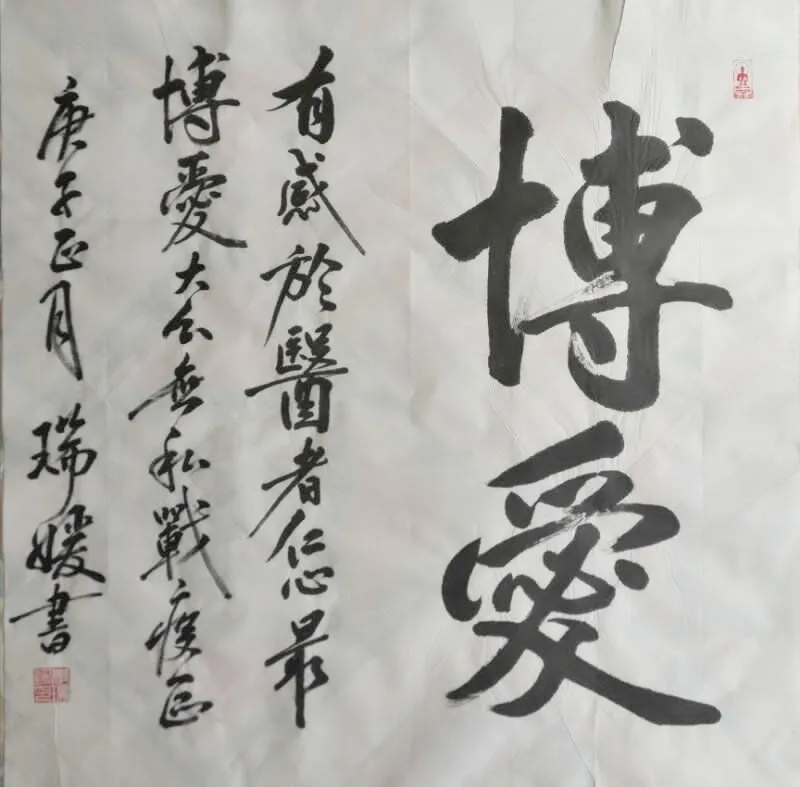 博愛
有感於醫者仁心最
博愛大公無私戰疫正
庚子正月 瑞媛書